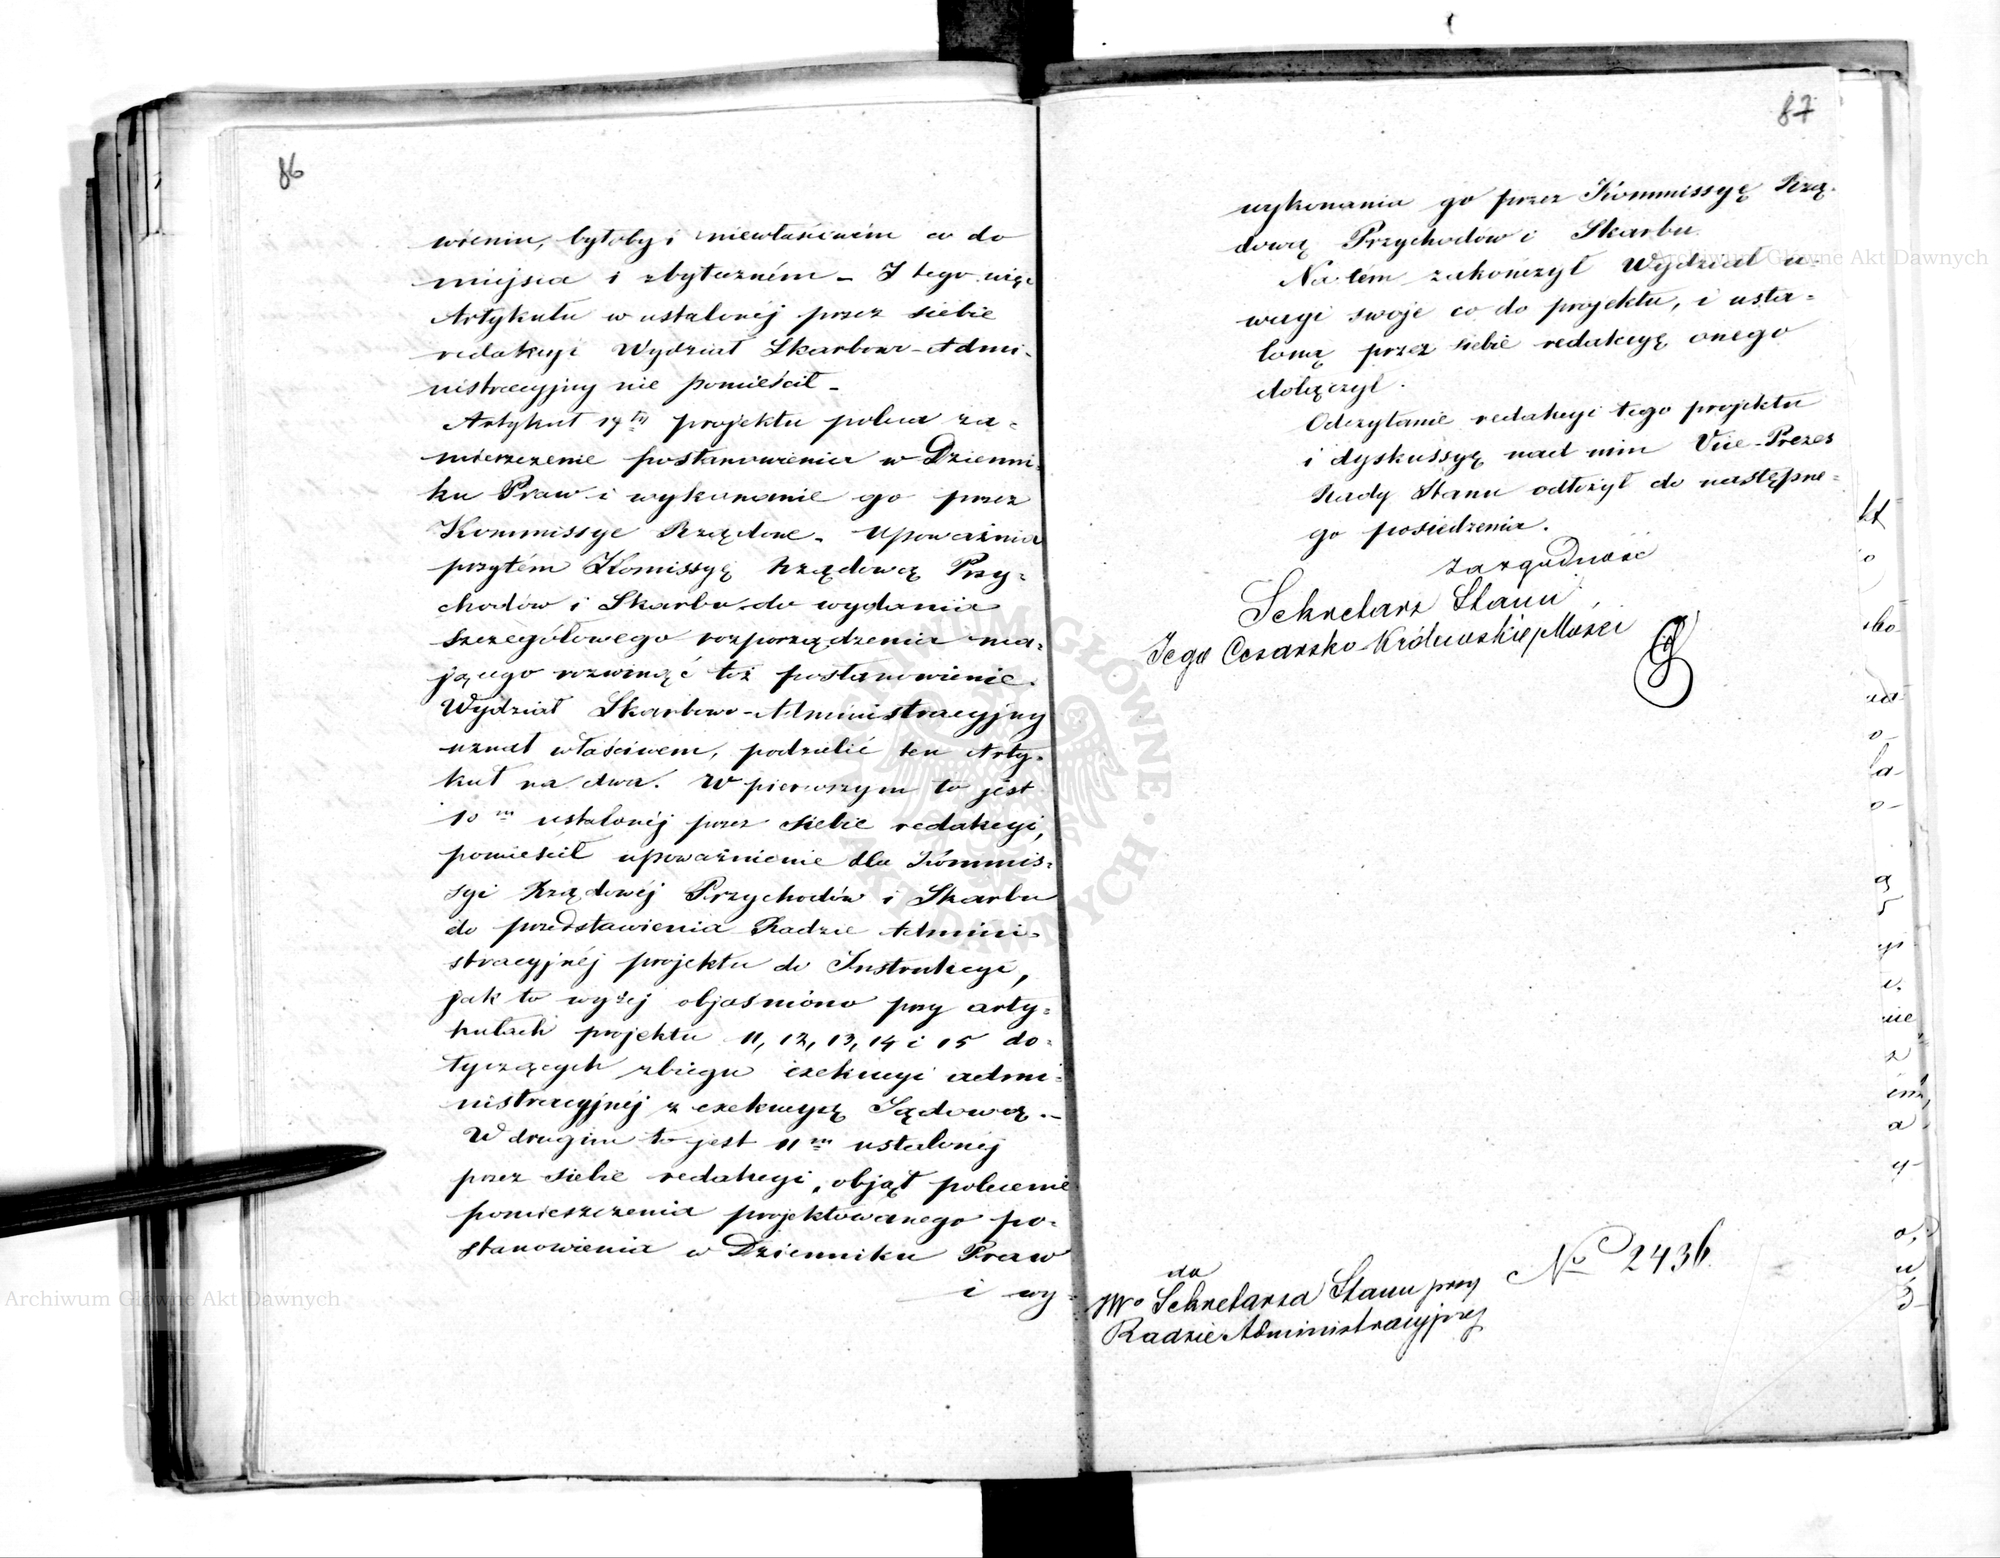 86
wieniu, byłoby i niewłaściwém co do
miejsca i zbyteczném – I tego więc
Artykułu w ustalonéj przez siebie
redakcyi Wydział Skarbowo-Admi-
nistracyjny nie pomieścił –
Artykuł 17ty projektu poleca za-
mieszczenie postanowienia w Dzienni-
ku Praw i wykonanie go przez
Kommissye Rządowe – upoważnia
przytém Komissyę Rządową Przy-
chodów i Skarbu do wydania
szczegółowego rozporządzenia ma-
jącego rozwinąć toż postanowienie.
Wydział Skarbowo-Administracyjny
uznał właściwem, podzielić ten Arty-
kuł na dwa. W pierwszym to jest
10m ustalonéj przez siebie redakcyi,
pomieścił upoważnienie dla Kommis-
syi Rządowéj Przychodów i Skarbu
do przedstawienia Radzie Admini-
stracyjnéj projektu do Instrukcyi,
jak to wyżej objaśniono przy arty-
kułach projektu 11, 12, 13, 14 i 15 do-
tyczących zbiegu exekucyi admi-
nistracyjnéj z exekucyą Sądową. –
W drugim to jest 11m ustalonéj
przez siebie redakcyi, objął polecenie
pomieszczenia projektowanego po-
stanowienia w Dzienniku Praw
i wy-
87
wykonania go przez Kommissyę Rzą-
dową Przychodów i Skarbu.
Na tém zakończył Wydział u-
wagi swoje co do projektu, i usta-
loną przez siebie redakcyę onego
dołączył.
Odczytanie redakcyi tego projektu
i dyskussyę nad nim Vice-Prezes
Rady Stanu odłożył do następne-
go posiedzenia.
za zgodność
Sekretarz Stanu
Jego Cesarsko-Królewskiej Mości
do
JW° Sekretarza Stanu przy
Radzie Administracyjnej
N° 2436.